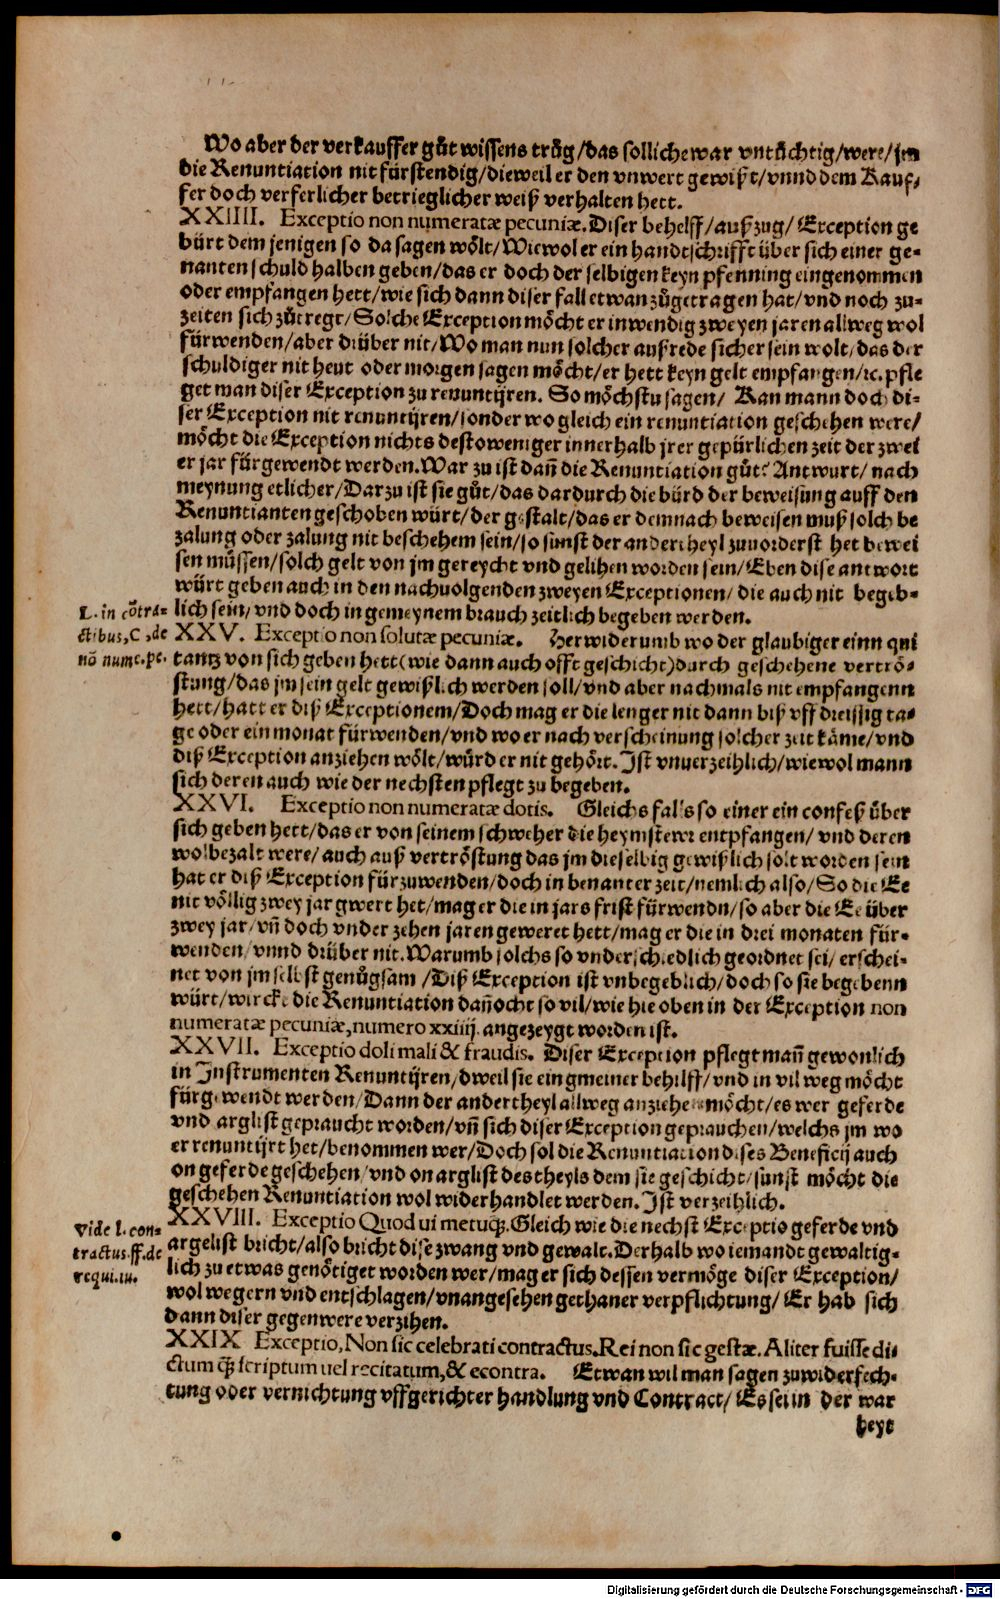 Wo aber der verkauffer gůt wissens trůg/das solliche war vntůchtig/were/jm
die Renuntiation nit fürstendig/dieweil er den vnwert gewißt/vnnd dem Kauf⸗
fer doch verferlicher betrieglicher weiß verhalten hett.
XXIIII. Exceptio non numeratæ pecuniæ. Diser behelff/außzug/ Exception ge
bürt dem jenigen so da sagen wölt/Wiewol er ein handtschrifft über sich einer ge⸗
nanten schuld halben geben/das er doch der selbigen keyn pfenning eingenommen
oder empfangen hett/wie sich dann diser fall etwan zůgetragen hat/vnd noch zu⸗
zeiten sich zůtregt/Solche Exception möcht er inwendig zweyen jaren allweg wol
fürwenden/aber drüber nit/Wo man nun solcher außrede sicher sein wolt/das der
schuldiger nit heut oder morgen sagen möcht/er hett keyn gelt empfangen/ꝛc. pfle
get man diser Exception zu renuntijren. So möchstu sagen/ Kan mann doch di⸗
ser Exception nit renuntijren/sonder wo gleich ein renuntiation geschehen were/
möcht die Exception nichts destoweniger innerhalb jrer gepürlichen zeit der zwei
er jar fürgewendt werden. War zu ist dañ die Renuntiation gůt? Antwurt/ nach
meynung etlicher/Darzu ist sie gůt/das dardurch die bürd der beweisung auff den
Renuntianten geschoben würt/der gestalt/das er demnach beweisen muß solch be
zalung oder zalung nit beschehem sein/so sunst der ander theyl zuuorderst het bewei
sen müssen/solch gelt von jm gereycht vnd gelihen worden sein/Eben dise antwort
würt geben auch in den nachuolgenden zweyen Exceptionen/ die auch nit begeb⸗
lich sein/vnd doch in gemeynem brauch zeitlich begeben werden.
L. in cõtra⸗
ctibus, C, de
nõ nume.pe.
XXV. Exceptio non solutæ pecuniæ. Herwiderumb wo der glaubiger einn qui
tantz von sich geben hett(wie dann auch offt geschicht)durch geschehene vertrö⸗
stung/das jm sein gelt gewißlich werden soll/vnd aber nachmals nit empfangenn
hett/hatt er diß Exceptionem/Doch mag er die lenger nit dann biß vff dreissig ta⸗
ge oder ein monat fürwenden/vnd wo er nach verscheinung solcher zeit käme/vnd
diß Exception anziehen wölt/würd er nit gehört. Ist vnuerzeihlich/wiewol mann
sich deren auch wie der nechsten pflegt zu begeben.
XXVI. Exceptio non numeratæ dotis. Gleichs fals so einer ein confeß über
sich geben hett/das er von seinem schweher die heymstewr entpfangen/ vnd deren
wol bezalt were/auch auß vertröstung das jm dieselbig gewißlich solt worden sein
hat er diß Exception fürzuwenden/doch in benanter zeit/nemlich also/So die Ee
nit völlig zwey jar gwert het/mag er die in jars frist fürwendn/so aber die Ee über
zwey jar/vñ doch vnder zehen jaren geweret hett/mag er die in drei monaten für⸗
wenden/vnnd drüber nit. Warumb solchs so vnderschiedlich geordnet sei/ erschei⸗
net von jm selbst genůgsam /Diß Exception ist vnbegeblich/doch so sie begebenn
würt/wircke die Renuntiation dañocht so vil/wie hie oben in der Exception non
numeratæ pecuniæ, numero xxiiij. angezeygt worden ist.
XXVII. Exceptio doli mali & fraudis. Diser Exception pflegt mañ gewonlich
in Instrumenten Renuntijren/dweil sie ein gmeiner behilff/vnd in vil weg möcht
fürgewendt werden/Dann der ander theyl allweg anziehen möcht/es wer geferde
vnd arglist gepraucht worden/vñ sich diser Exception geprauchen/welchs jm wo
er renuntijrt het/benommen wer/Doch sol die Renuntiation dises Beneficij auch
on geferde geschehen/vnd on arglist des theyls dem sie geschicht/sunst möcht die
geschehen Renuntiation wol widerhandlet werden. Ist verzeihlich.
Vide l. con⸗
tractus.ff.de
requi.iu.
XXVIII. Exceptio Quod ui metuqꝫ. Gleich wie die nechst Exceptio geferde vnd
argelist bricht/also bricht dise zwang vnd gewalt. Derhalb wo iemandt gewaltig⸗
lich zu etwas genötiget worden wer/mag er sich dessen vermöge diser Exception/
wol wegern vnd entschlagen/vnangesehen gethaner verpflichtung/ Er hab sich
dann diser gegenwere verzihen.
XXIX Exceptio, Non sic celebrati contractus. Rei non sic gestæ. Aliter fuisse di⸗
ctum qꝫ scriptum uel recitatum, & econtra. Etwan wil man sagen zuwiderfech⸗
tung oder vernichtung vffgerichter handlung vnd Contract/ Es sei in der war
heyt
Digitalisierung gefördert durch die Deutsche Forschungsgemeinschaft - DFG